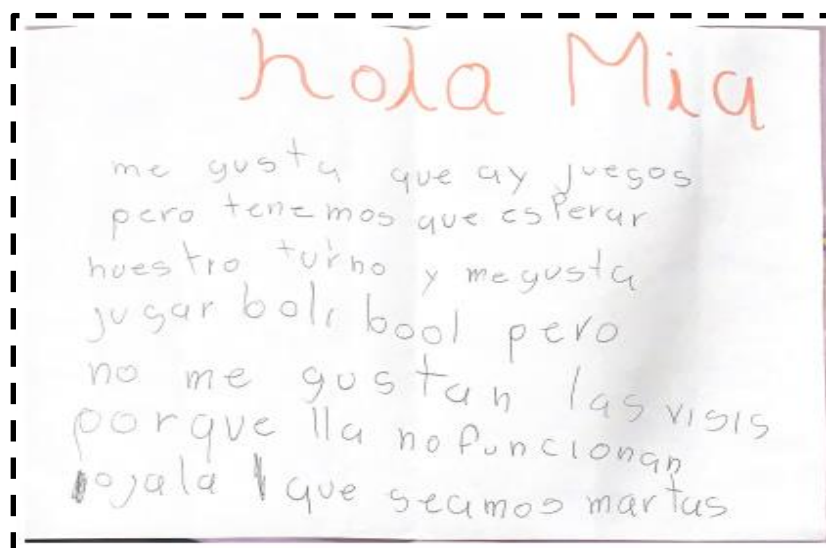 hola Mia
me gusta que ay juegos
pero tenemos que esperar
nuestro turno y me gusta
jugar boli bool pero
no me gustan las visis
porque lla no funcionan
ojala que seamos martas